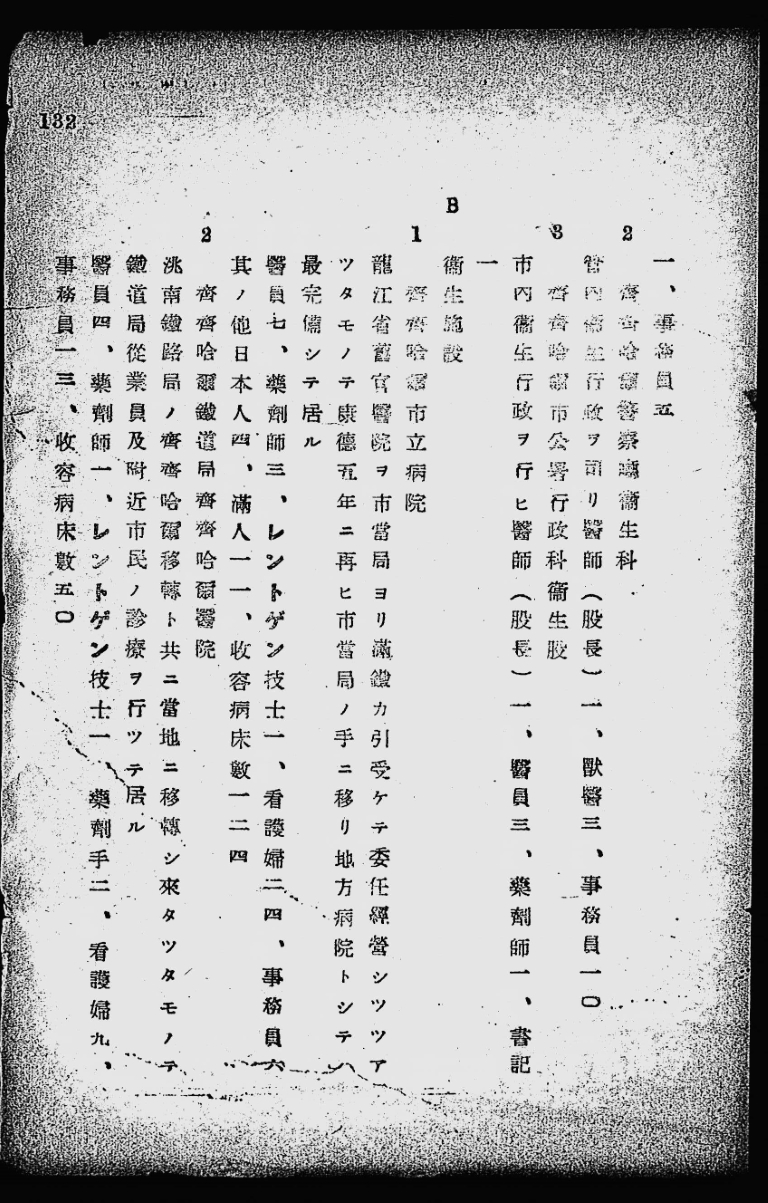 132
一、事務員五
2 齊齊哈爾警察廳衞生科
管內衞生行政ヲ司リ醫師（股長）一、獸醫三、事務員一〇
3 齊齊哈爾市公署行政科衞生股
市內衞生行政ヲ行ヒ醫師（股長）一、醫員三、藥劑師一、書記
一
B 衞生施設
1 齊齊哈爾市立病院
龍江省舊官醫院ヲ市當局ヨリ滿鐵カ引受ケテ委任經營シツツア
ツタモノテ康德五年ニ再ヒ市當局ノ手ニ移リ地方病院トシテハ
最完備シテ居ル
醫員七、藥劑師三、レントゲン技士一、看護婦二四、事務員六
其ノ他日本人四、滿人一一、收容病床數一二四
2 齊齊哈爾鐵道局齊齊哈爾醫院
洮南鐵路局ノ齊齊哈爾移轉ト共ニ當地ニ移轉シ來タツタモノテ
鐵道局從業員及附近市民ノ診療ヲ行ツテ居ル
醫員四、藥劑師一、レントゲン技士一、藥劑手二、看護婦九、
事務員一三、收容病床數五〇